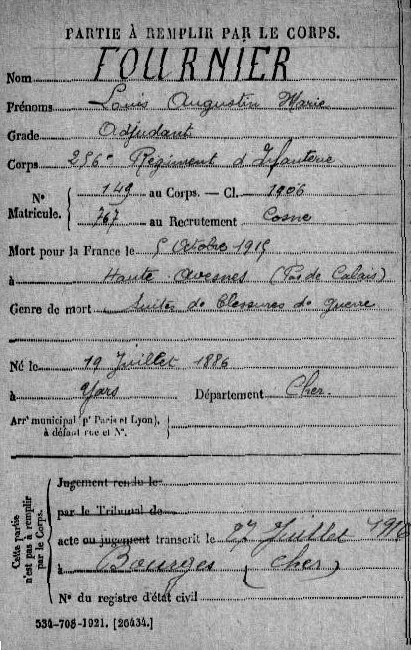 PARTIE À REMPLIR PAR LE CORPS.
Nom FOURNIER
Prénoms Louis Augustin Marie
Grade Adjudant
Corps 256e Régiment d'Infanterie
N° Matricule. 149 au Corps. — Cl. 1906
767 au Recrutement Cosne
Mort pour la France le 5 Octobre 1915
à Haute Avesnes (Pas de Calais)
Genre de mort Suites de blessures de guerre
Né le 19 Juillet 1886
à Jars Département Cher
Arrt municipal (pr Paris et Lyon), à défaut rue et N°.
Cette partie n'est pas à remplir par le Corps.
Jugement rendu le
par le Tribunal de
acte ou jugement transcrit le 27 Juillet 1916
à Bourges (Cher)
N° du registre d'état civil
534-708-1921. [26434.]